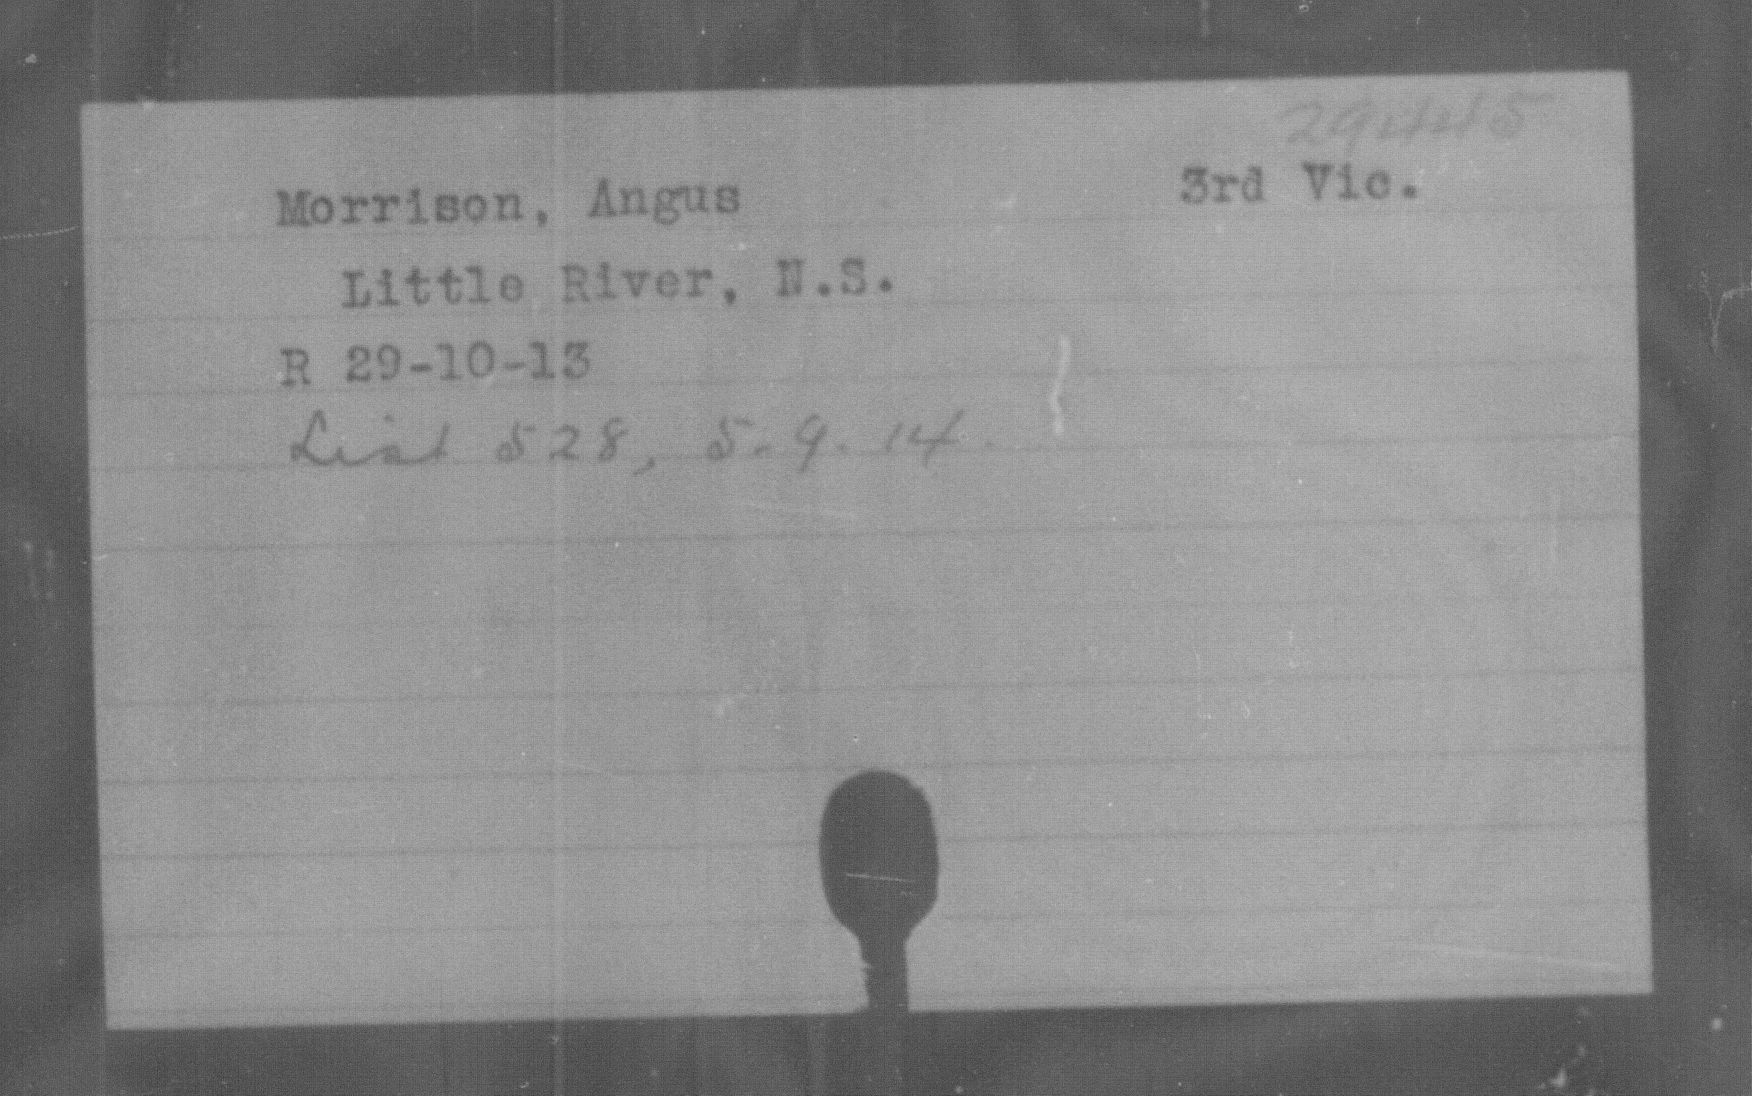 29445
Morrison, Angus 3rd Vic.
Little River, N.S.
R 29-10-13
List 528, 5.9.14.